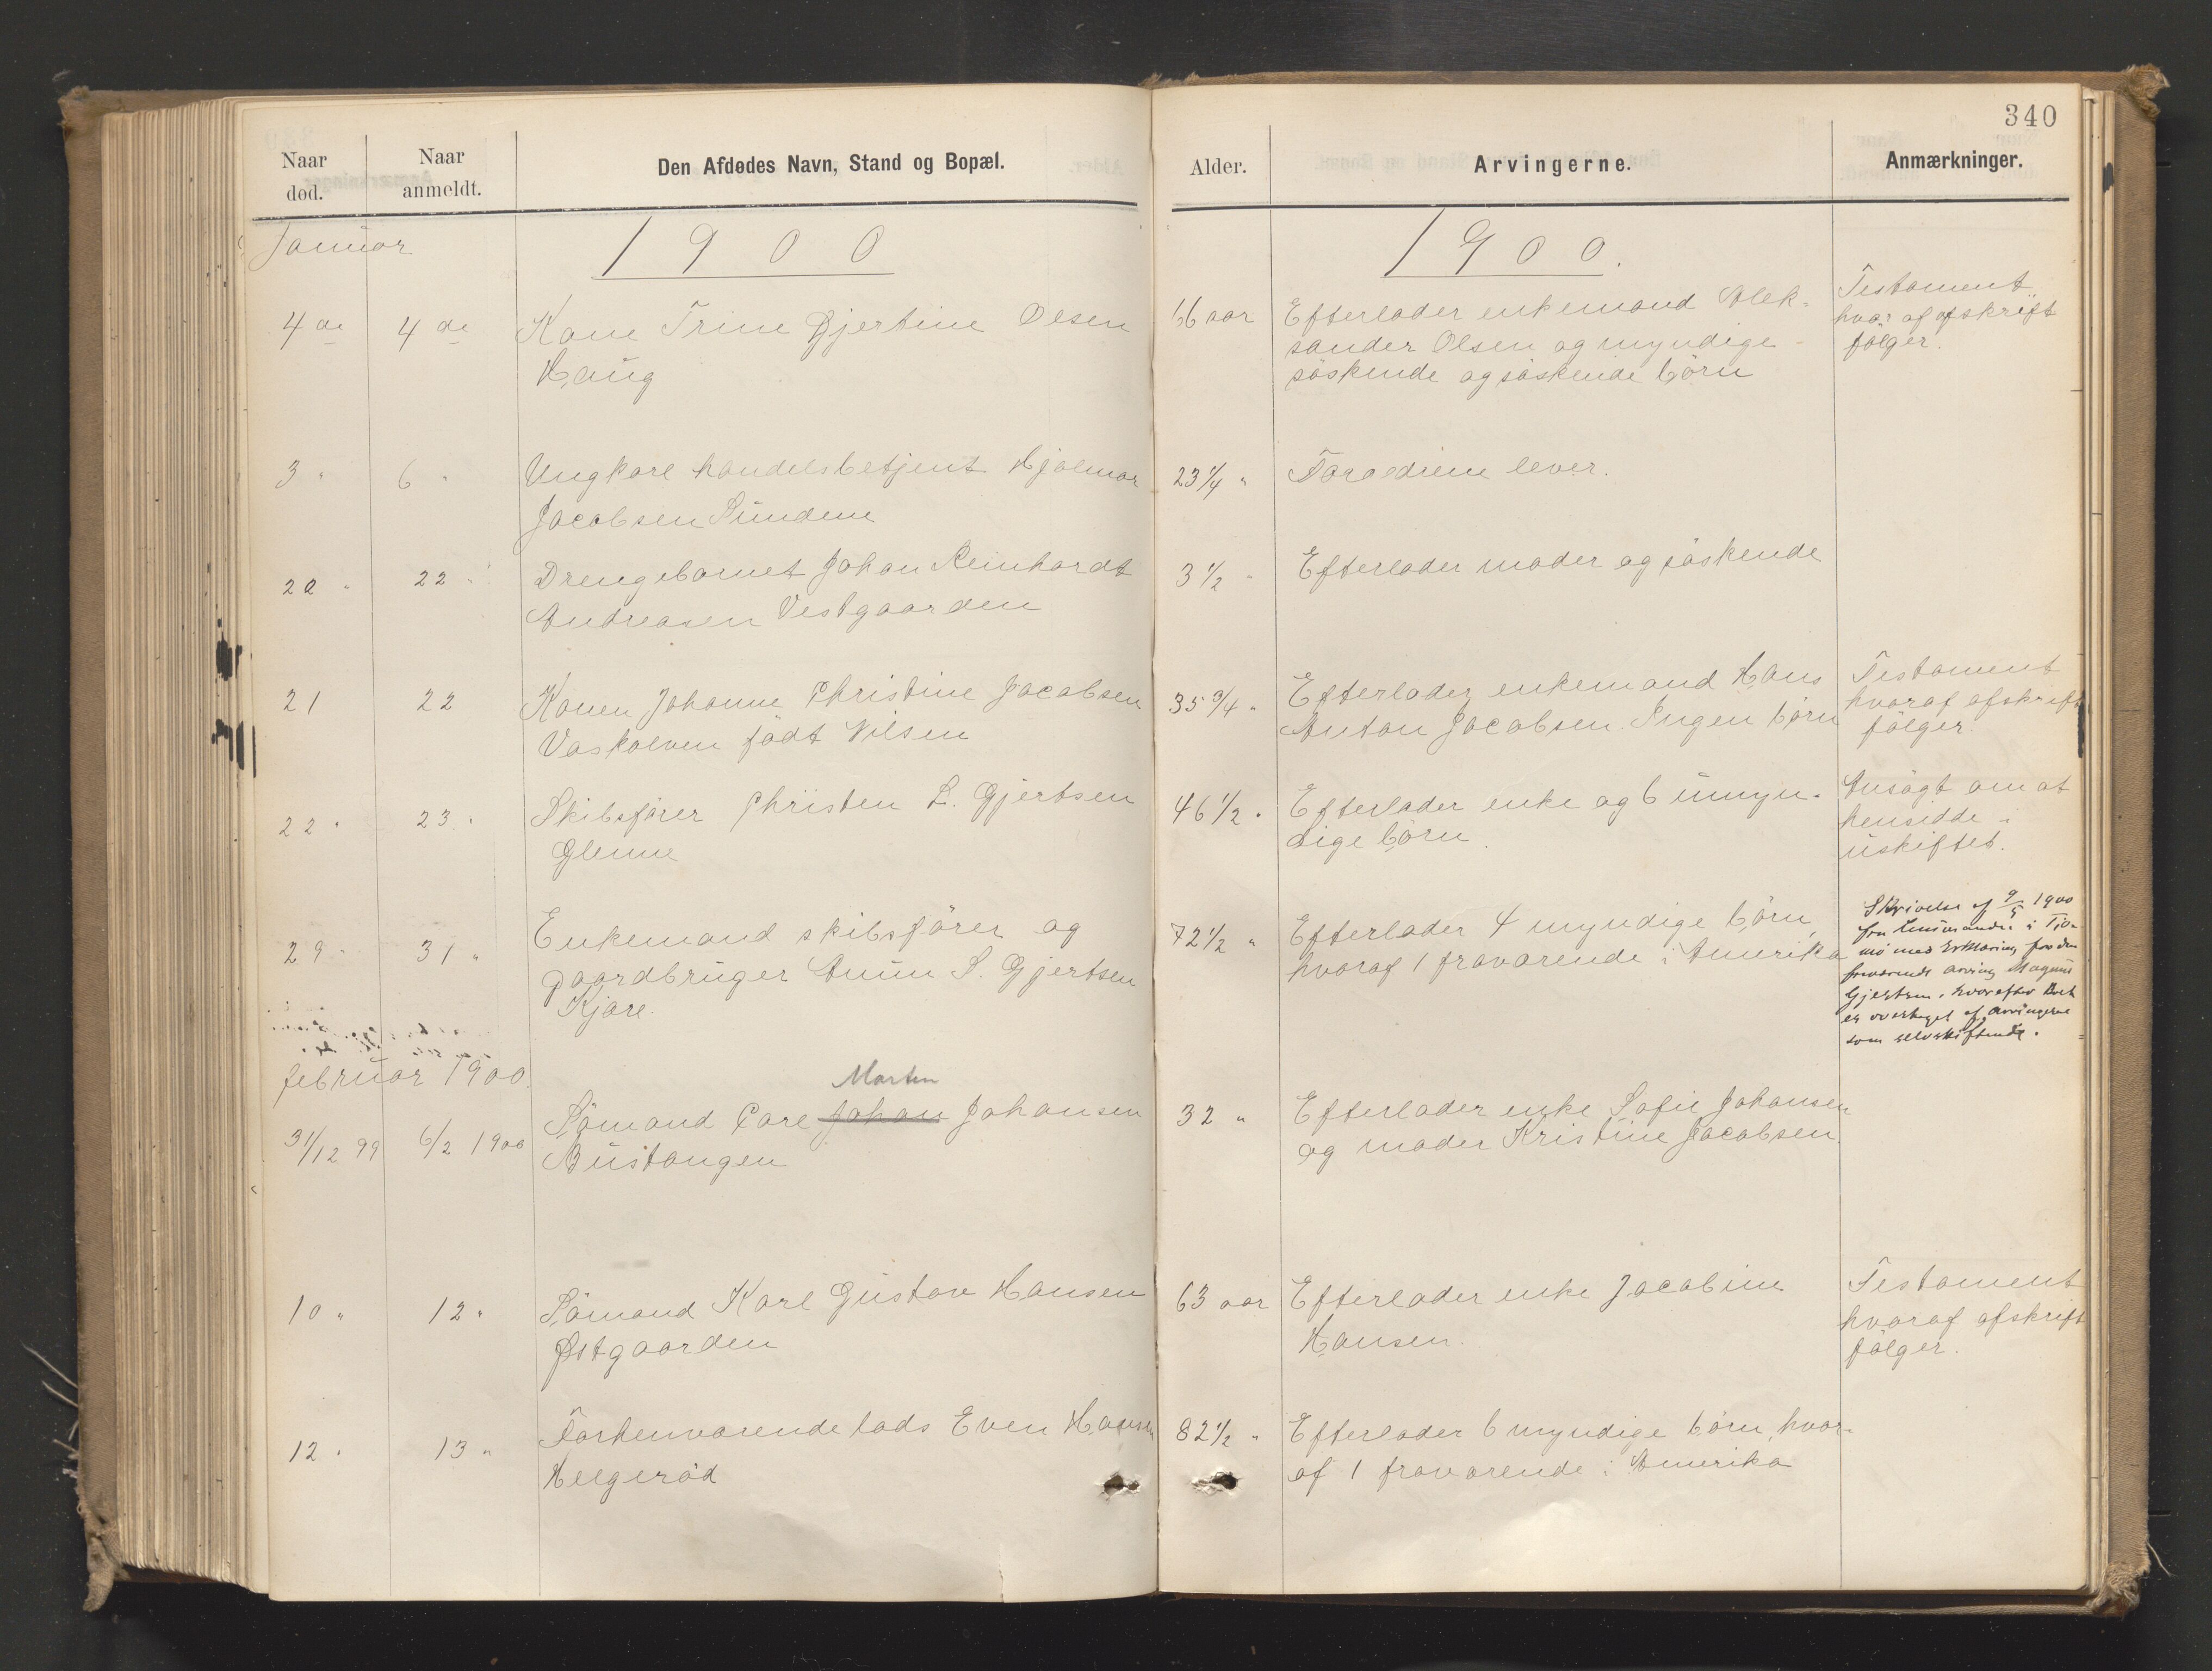 340
Naar død.
Naar anmeldt.
Den Afdødes Navn, Stand og Bopæl.
Alder.
Arvingerne.
Anmærkninger.
Januar
1900
1900.
4de
4de
Kone Trine Gjertine Olsen
Haug
66 aar
Efterlader enkemand Alek-
sander Olsen og myndige
söskende og söskende börn
Testament
hvoraf afskrift
fölger.
3 "
6 "
Ungkarl handelsbetjent Hjalmar
Jacobsen Sundene
23 1/4 "
Foræddrene lever.
20 "
22 "
Drengebarnet Johan Reinhardt
Andreasen Vestgaarden
3 1/2 "
Efterlader moder og söskende
21
22
Konen Johanne Christine Jacobsen
Vaskalven födt Nilsen
35 3/4 "
Efterlader enkemand Hans
Anton Jacobsen. Ingen börn
Testament
hvoraf afskrift
fölger
22 "
23 "
Skibsförer Christen L. Gjertsen
Glenne
46 1/2 "
Efterlader enke og 6 umyn-
dige börn.
Ansögt om at
hensidde i
uskiftet.
29 "
31 "
Enkemand skibsförer og
gaardbruger Anun S. Gjertsen
Kjære.
72 1/2 "
Efterlader 4 myndige börn,
hvoraf 1 fraværende i Amerika
Skrivelse af 9/5 1900
fra Lensmanden i Tjö-
mö med Erklæring fra den
fraværende arving Magnus
Gjertsen, hvorefter Boet
er overtaget af arvingerne
som selvskiftende.
februar 1900.
31/12 99
6/2 1900
Sömand Carl Johan Johansen
Marten
Bustangen
32 "
Efterlader enke Sofie Johansen
og moder Kristine Jacobsen.
10 "
12 "
Sömand Karl Gustav Hansen
Østgaarden
63 aar
Efterlader enke Jacobine
Hansen.
Testament
hvoraf afskrift
fölger.
12 "
13 "
Forhenværende lods Even Hansen
Helgeröd
82 1/2 "
Efterlader 6 myndige börn, hvor-
af 1 fraværende i Amerika